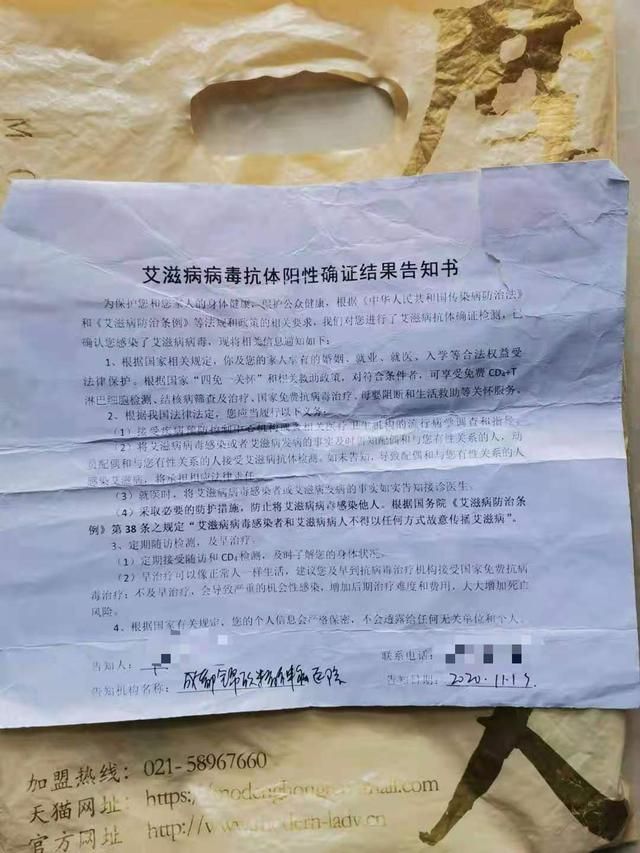 艾滋病病毒抗体阳性确证结果告知书
为保护您和您家人的身体健康，保护公众健康，根据《中华人民共和国传染病防治法》
和《艾滋病防治条例》等法规和政策的相关要求，我们对您进行了艾滋病抗体确证检测，已
确认您感染了艾滋病病毒，现将相关信息通知如下：
1、根据国家相关规定，你及您的家人享有的婚姻、就业、就医、入学等合法权益受
法律保护。根据国家“四免一关怀”和相关救助政策，对符合条件者，可享受免费 CD₄+T
淋巴细胞检测、结核病筛查及治疗、国家免费抗病毒治疗、母婴阻断和生活救助等关怀服务。
2、根据我国法律法定，您应当履行以下义务：
（1）接受疾病预防控制中心机构或相关医疗卫生机构的流行病学调查和指导。
（2）将艾滋病病毒感染或者艾滋病发病的事实及时告知配偶和与您有性关系的人，动
员配偶和与您有性关系的人接受艾滋病抗体检测。如未告知，导致配偶和与您有性关系的人
感染艾滋病，将承担相应法律责任。
（3）就医时，将艾滋病病毒感染者或艾滋病发病的事实如实告知接诊医生。
（4）采取必要的防护措施，防止将艾滋病病毒感染他人。根据国务院《艾滋病防治条
例》第 38 条之规定“艾滋病病毒感染者和艾滋病病人不得以任何方式故意传播艾滋病”。
3、定期随访检测，及早治疗。
（1）定期接受随访和 CD₄检测，及时了解您的身体状况。
（2）早治疗可以像正常人一样生活，建议您及早到抗病毒治疗机构接受国家免费抗病
毒治疗；不及早治疗，会导致严重的机会性感染，增加后期治疗难度和费用，大大增加死亡
风险。
4、根据国家有关规定，您的个人信息会严格保密，不会透露给任何无关单位和个人。
告知人：
联系电话：
告知机构名称：成都锦欣精神病医院
告知日期：2020.11.19
加盟热线：021-58967660
天猫网址：https://
官方网址 http://www.modern-lady.cn